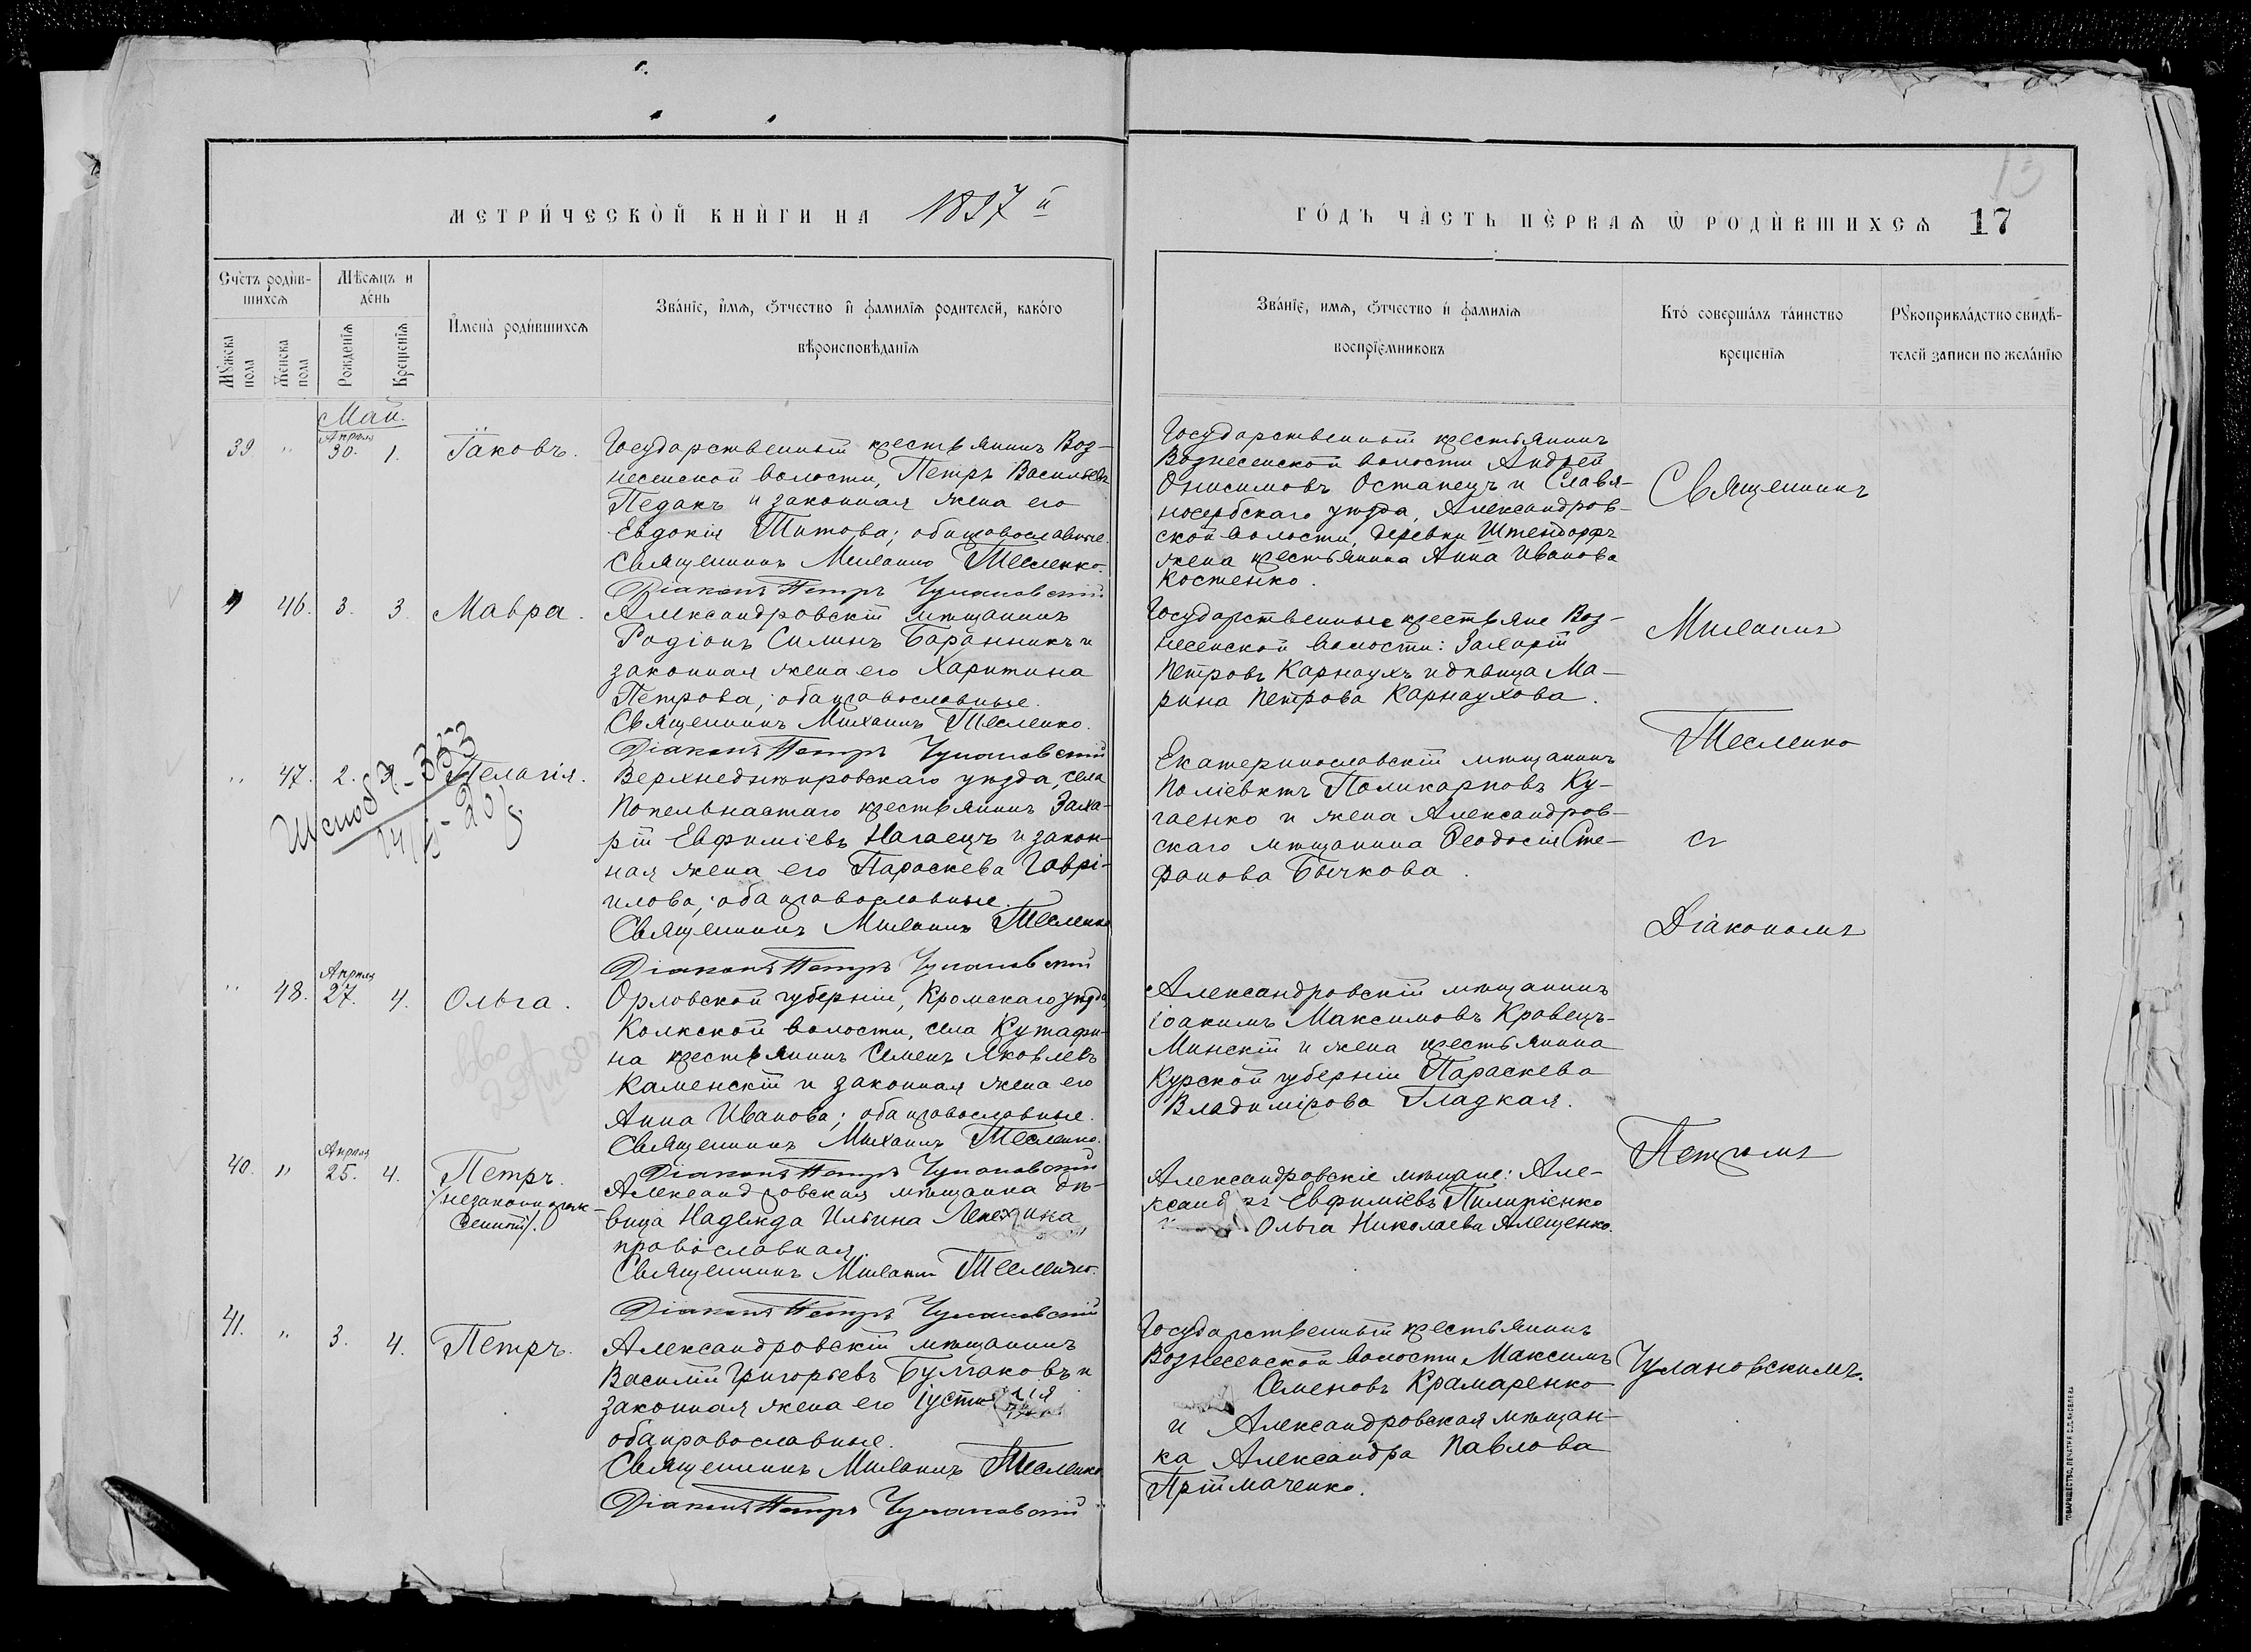 МЕТРИ́ЧЕСКО́Й КНИ́ГИ НА 1897 й
ГО́ДЪ ЧА́СТЬ ПЕ́РВАѦ Ѡ РОДИ́ВШИХСѦ 17
Сче́тъ роди́в-
шихсѧ
Мѣ́сѧцъ и
де́нь
И҆мена̀ роди́вшихсѧ
Зва́нїе, и҆́мѧ, ѻ҆́тчество и҆ фамилїѧ родителей, како́го
вѣроисповѣданїѧ
Мꙋжеска
пола
Женска
пола
Рожденїѧ
Крещенїѧ
Зва́нїе, имѧ, ѻ҆́тчество и҆ фамилїѧ
воспрїемниковъ
Кто́ соверша́лъ та́инство
креще́нїѧ
Рꙋкоприкла́дство свидѣ́-
телей записи по жела́нїю
Май.
39. " Апрѣля 30. 1. Іаковъ.
Государственный крестьянинъ Воз-
несенской волости, Петръ Васильевъ
Педакъ и законная жена его
Евдокія Титова; оба православные.
Священникъ Михаилъ Тесленко.
Діаконъ Петръ Чулановскій
Государственный крестьянинъ
Вознесенской волости Андрей
Онисимовъ Остапецъ и Славя-
носербскаго уѣзда, Александров-
ской волости, деревни Штендорфъ
жена крестьянина Анна Иванова
Костенко.
" 46. 3. 3. Мавра.
Александровскій мѣщанинъ
Родіонъ Силинъ Баранникъ и
законная жена его Харитина
Петрова; оба православные.
Священникъ Михаилъ Тесленко.
Діаконъ Петръ Чулановскій
Государственные крестьяне Воз-
несенской волости: Захарій
Петровъ Карнаухъ и дѣвица Ма-
рина Петрова Карнаухова.
" 47. 2. 3. Пелагія.
Верхнеднѣпровскаго уѣзда, села
Попельнастаго крестьянинъ Заха-
рій Евфиміевъ Нагаецъ и закон-
ная жена его Параскева Гаврі-
илова; оба православные.
Священникъ Михаилъ Тесленко
Діаконъ Петръ Чулановскій
Екатеринославскій мѣщанинъ
Поліевктъ Поликарповъ Ку-
гаенко и жена Александров-
скаго мѣщанина Ѳеодосія Сте-
фанова Бычкова.
" 48. Апрѣля 27. 4. Ольга.
Орловской губерніи, Кромскаго уѣзда
Колкской волости, села Кутафи-
на крестьянинъ Семенъ Яковлевъ
Каменскій и законная жена его
Анна Иванова; оба православные.
Священникъ Михаилъ Тесленко.
Діаконъ Петръ Чулановскій
Александровскій мѣщанинъ
Іоакимъ Максимовъ Кравецъ-
Минскій и жена крестьянина
Курской губерніи Параскева
Владимірова Гладкая.
40. " Апрѣля 25. 4. Петръ.
/незаконнорож-
денный/.
Александровская мѣщанка дѣ-
вица Надежда Ильина Лепехина,
православная.
Священникъ Михаилъ Тесленко.
Діаконъ Петръ Чулановскій
Александровскіе мѣщане: Але-
ксандръ Евфиміевъ Пилипенко
и Ольга Николаева Алещенко.
41. " 3. 4. Петръ.
Александровскій мѣщанинъ
Василій Григорьевъ Булгаковъ и
законная жена его Іустинія
оба православные.
Священникъ Михаилъ Тесленко
Діаконъ Петръ Чулановскій
Государственный крестьянинъ
Вознесенской волости Максимъ
Семеновъ Крамаренко
и Александровская мѣщан-
ка Александра Павлова
Пріймаченко.
Священникъ
Михаилъ
Тесленко
съ
Діакономъ
Петромъ
Чулановскимъ.